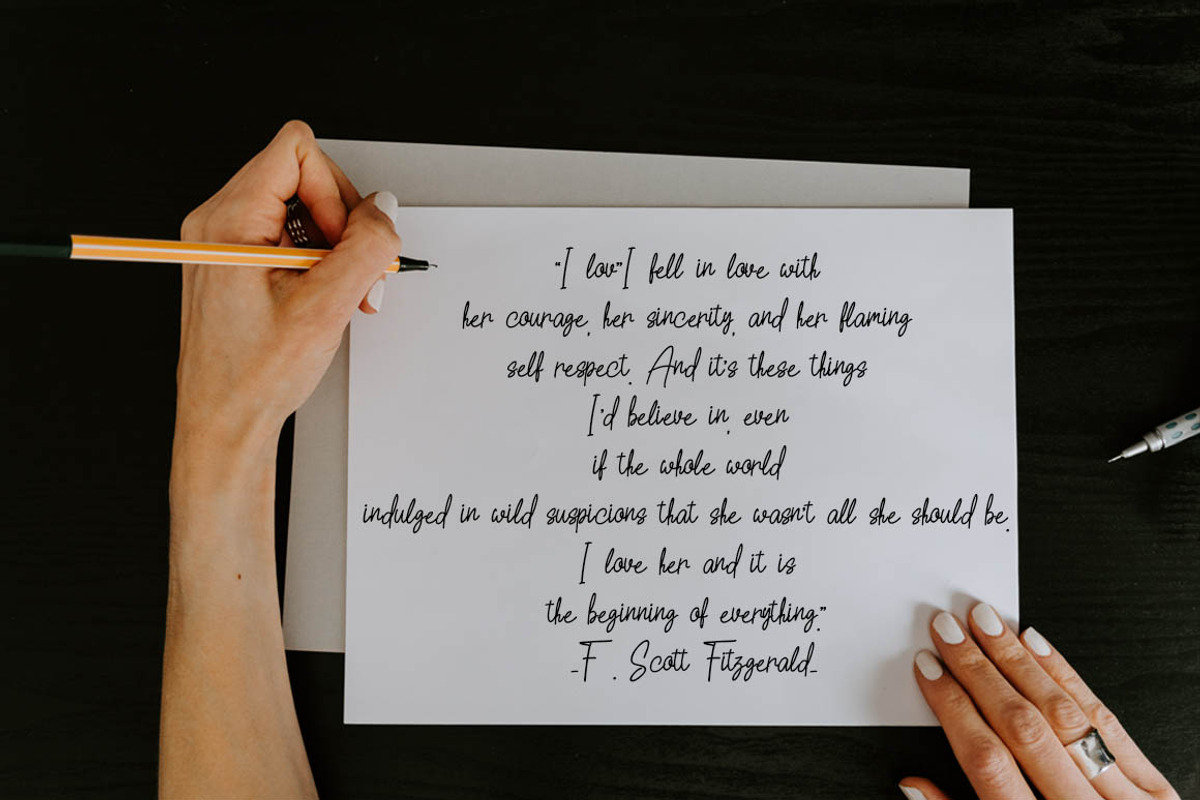 "I lov"I fell in love with
her courage, her sincerity, and her flaming
self respect. And it's these things
I'd believe in, even
if the whole world
indulged in wild suspicions that she wasn't all she should be.
I love her and it is
the beginning of everything."
-F. Scott Fitzgerald-